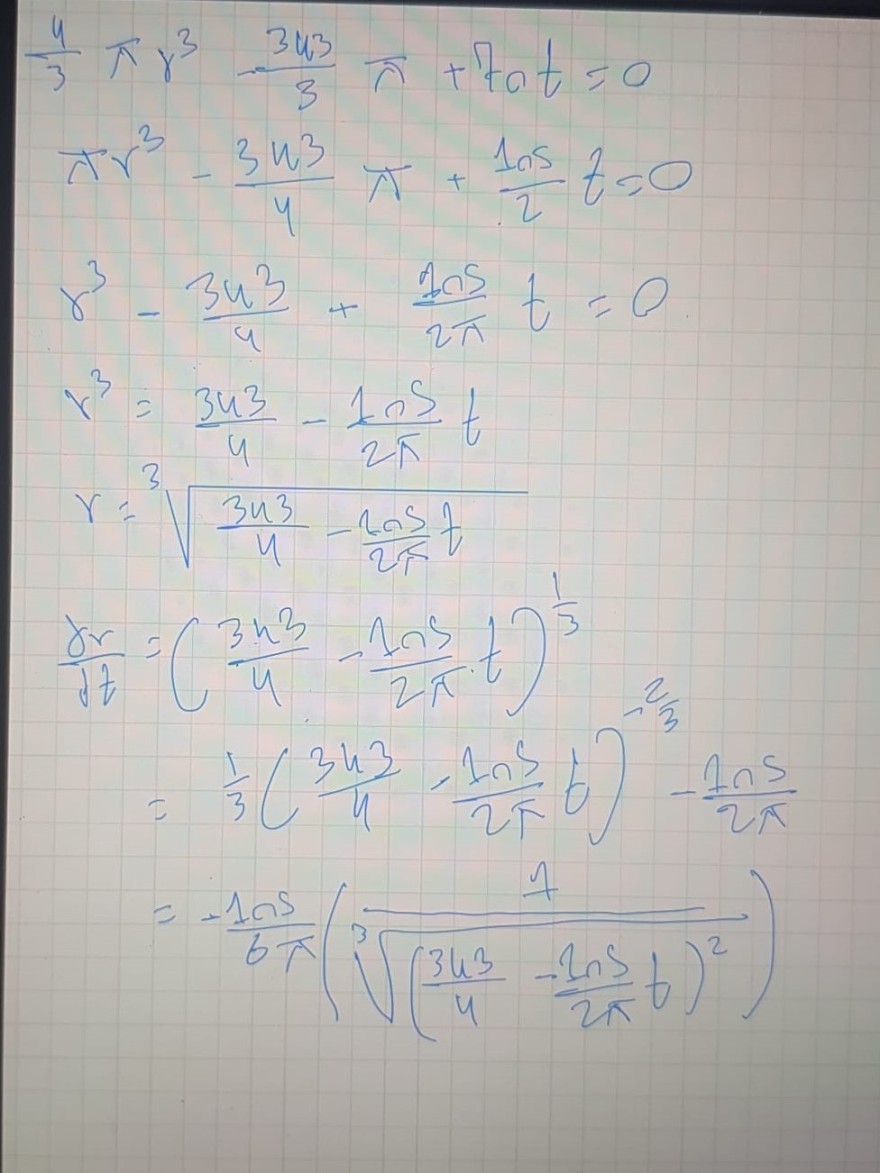 4/3 π r³ - 343/3 π + 70t = 0
πr³ - 343/4 π + 105/2 t = 0
r³ - 343/4 + 105/2π t = 0
r³ = 343/4 - 105/2π t
r = ³√(343/4 - 105/2π t)
dr/dt = (343/4 - 105/2π t)^1/3
= 1/3 (343/4 - 105/2π t)^-2/3 - 105/2π
= -105/6π (1/³√((343/4 - 105/2π t)²))